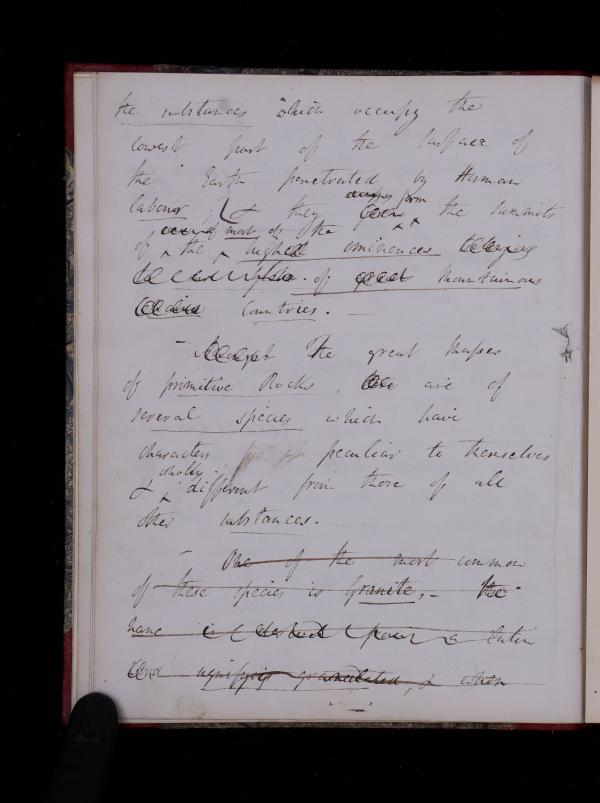 the substances which occupy the
lowest part of the surface of
the Earth penetrated by Human
labour; & they form the summits
of the most of the highest eminences
of great Mountainous
Countries. —
— The great Masses
of primitive Rocks, are of
several species which have
characters peculiar to themselves
& wholly different from those of all
other substances.
— One of the most common
of these species is Granite, — the
name is derived from a Latin
word signifying granulated, & when